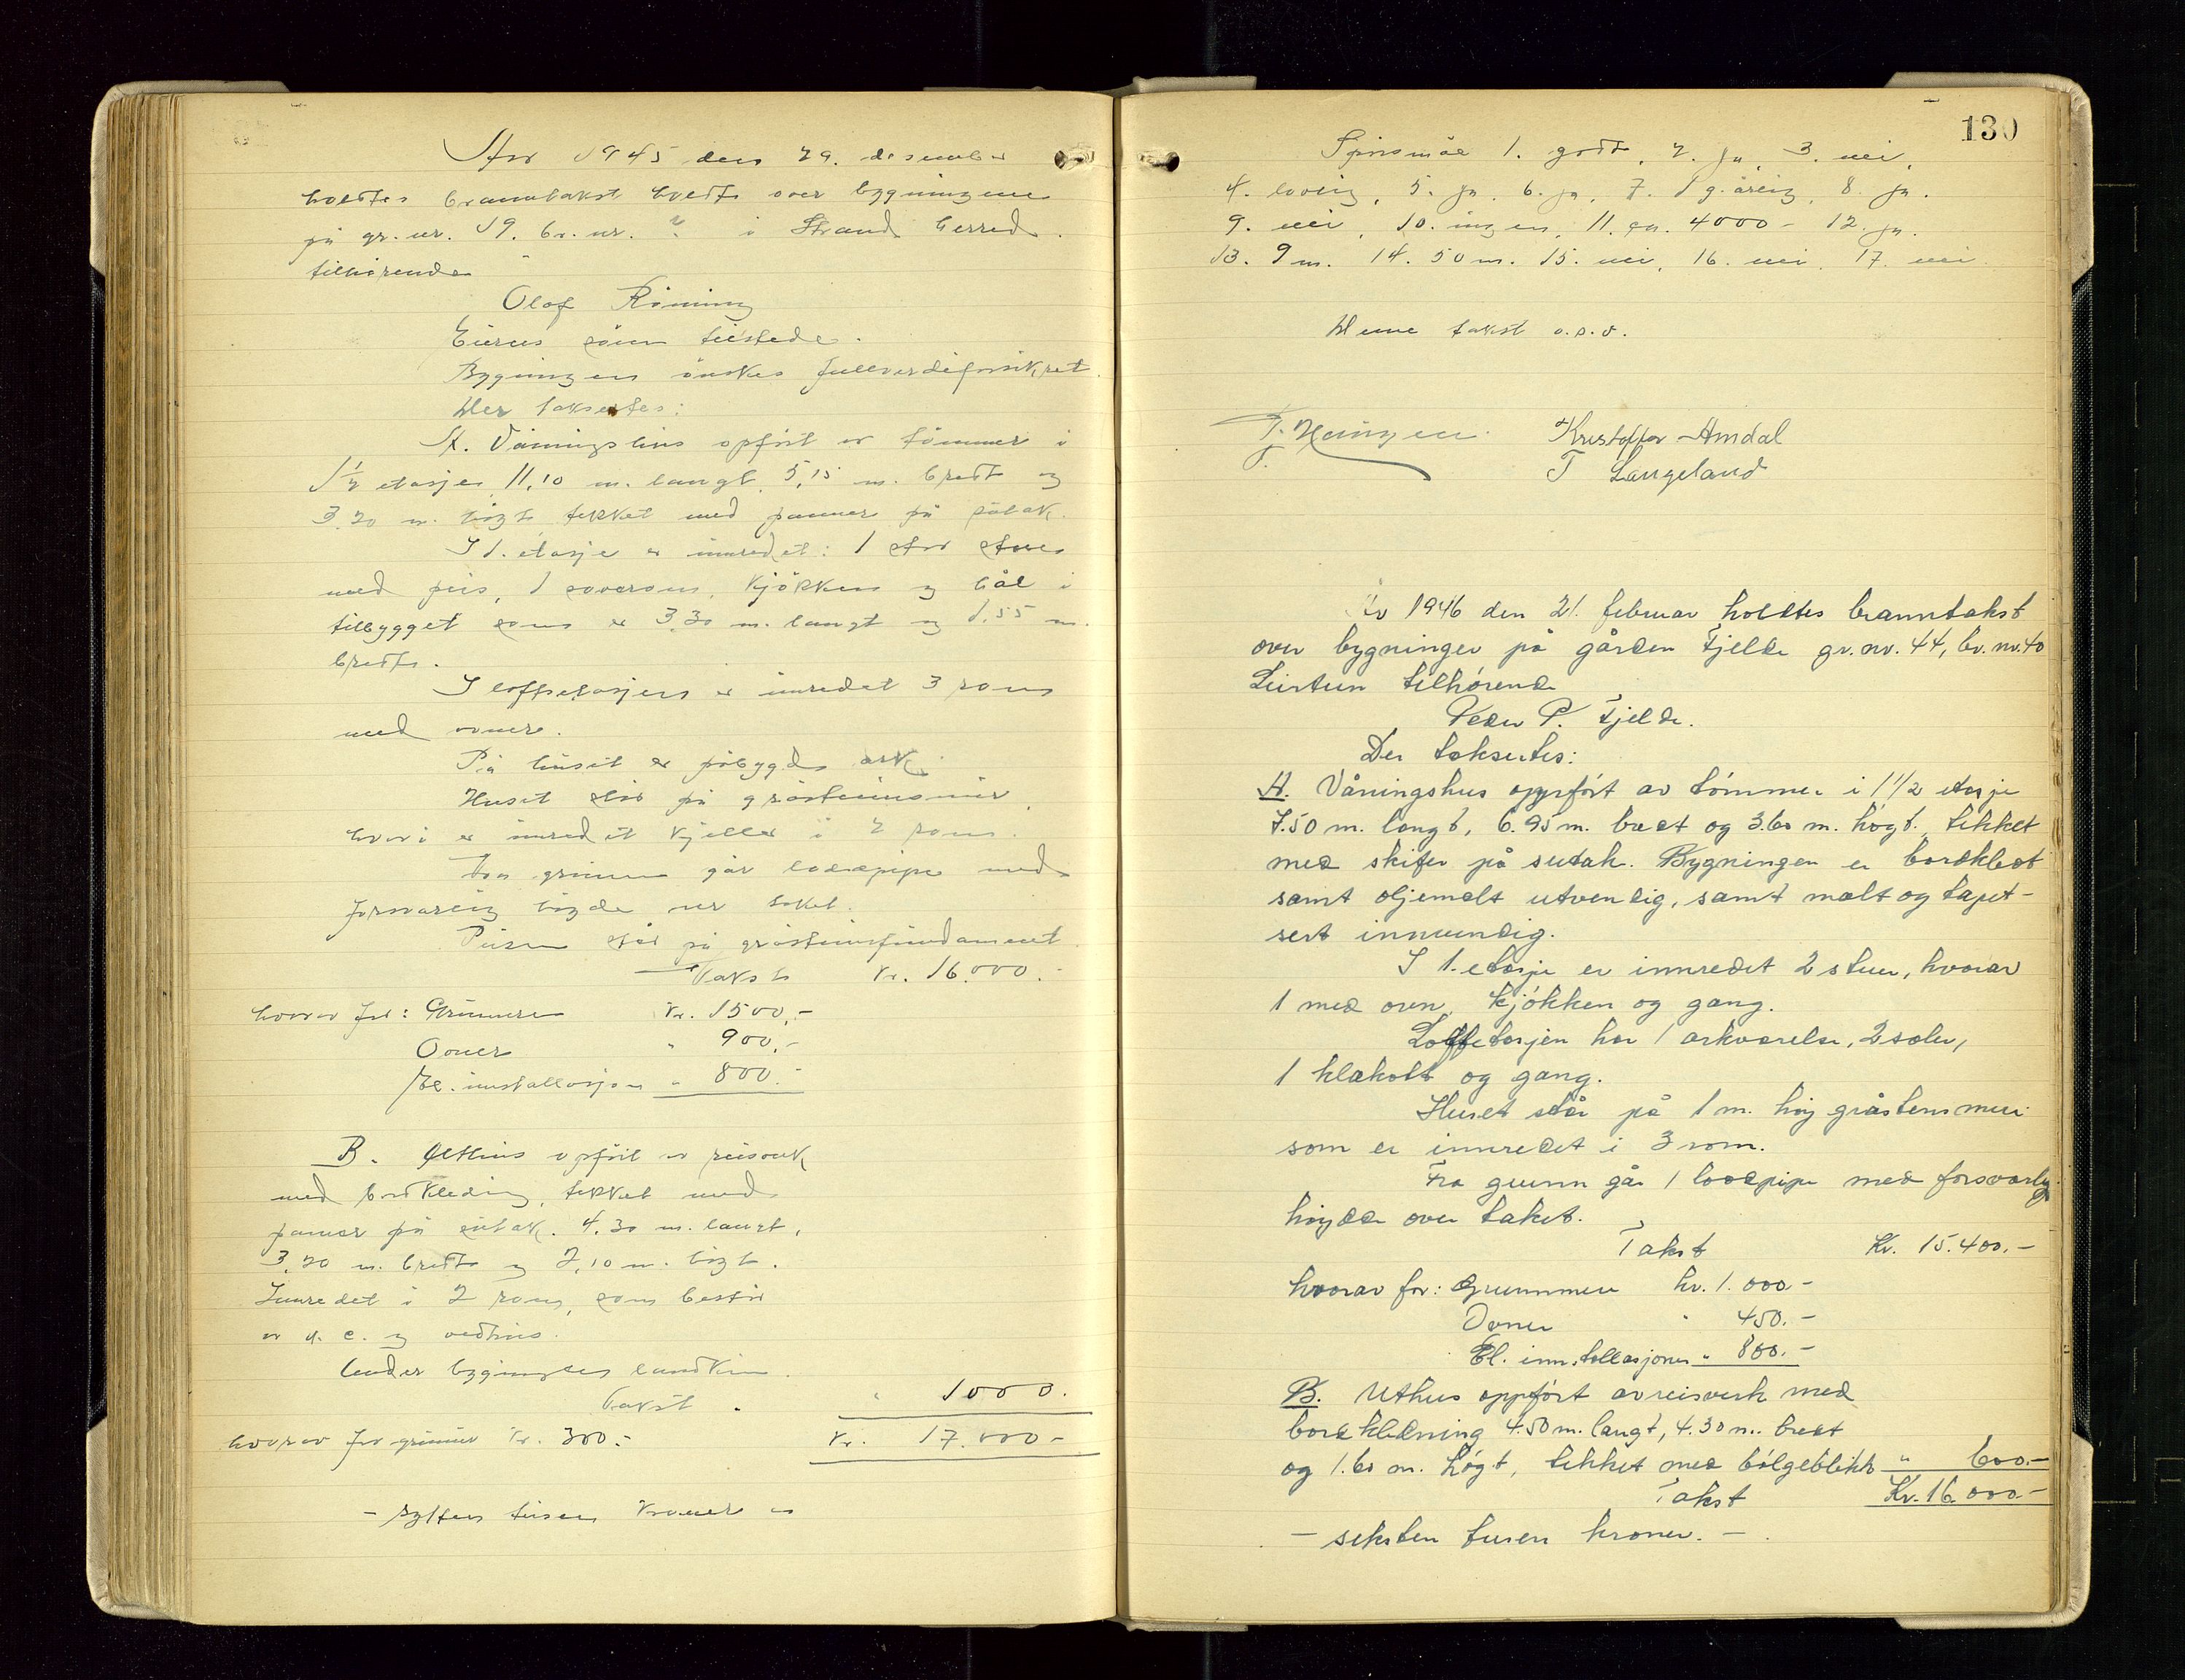 År 1945 den 29. desember
holdtes branntakst holdt over bygningene
på gr. nr. 19. br. nr. 2 i Strand herred
tilhørende
Olaf Röining
Eierens sønn tilstede.
Bygningen ønskes fullverdiforsikret.
Der taksertes:
A. Våningshus opført av tømmer i
1½ etasjer 11,10 m. langt, 5,15 m. bredt og
3,20 m. högt tekket med panner på sutak.
I 1. etasje er innredet: 1 stor stue
med peis, 1 soverom, kjøkken og hål i
tilbygget som er 3,30 m. langt og 1,55 m.
bredt.
I loftsetasjen er innredet 3 rom
med ovner.
På huset er påbygd ark.
Huset står på gråsteinsmur
hvori er innredet kjeller i 2 rom.
Fra grunnen går loddpipe med
forsvarlig högde over taket.
Peisen står på gråsteinsfundament
Takst Kr. 16.000.-
hvorav for: Grunnmuren Kr. 1500,-
Ovner " 900,-
El. installasjon " 800.-
B. Uthus opført av reisverk
med bordkledning, tekket med
panner på sutak. 4,30 m. langt,
3,20 m. bredt og 2,10 m. högt.
Innredet i 2 rom, som består
av d. c. og vedhus.
Under bygningen
Takst " 1000.
hvorav for grunnmur Kr. 300.- Kr. 17.000-
- sytten tusen kroner -
130
Spörsmål 1. godt, 2. ja, 3. nei,
4. lovlig, 5. ja, 6. ja, 7. 19. årlig, 8. ja.
9. nei, 10. ingen, 11. ca. 4000- 12. ja.
13. 9 m. 14. 50 m. 15. nei, 16. nei, 17. nei
Denne takst o.s.v.
T. Kristoffer Amdal
T. T Langeland
År 1946 den 21. februar holdtes branntakst
over bygninger på gården Fjelde gr. nr. 44, br. nr. 40
Leirtun tilhørende
Peder P. Fjelde.
Der taksertes:
A. Våningshus oppført av tømmer i 1 1/2 etasje
7.50 m. langt, 6.95 m. bredt og 3.60 m. høgt. tekket
med skifer på sutak. Bygningen er bordkledt
samt oljemalt utvendig, samt malt og tapet-
sert innvendig.
I 1. etasje er innredet 2 stuer, hvorav
1 med ovn, kjøkken og gang.
Loftsetasjen har 1 arkværelse, 2 soler,
1 klekott og gang.
Huset står på 1 m. høy gråstensmur
som er innredet i 3 rom.
Fra grunn går 1 loddpipe med forsvarlig
høyde over taket.
Takst Kr. 15.400.-
hvorav for: Grunnmur kr. 1.000-
Ovner " 450.-
El. installasjoner " 800.-
B. Uthus oppført av reisverk med
bordkledning 4.50 m. langt, 4.30 m. bredt
og 1.60 m. høgt, tekket med bølgeblikk " 600.-
Takst Kr. 16.000.-
- seksten tusen kroner. -